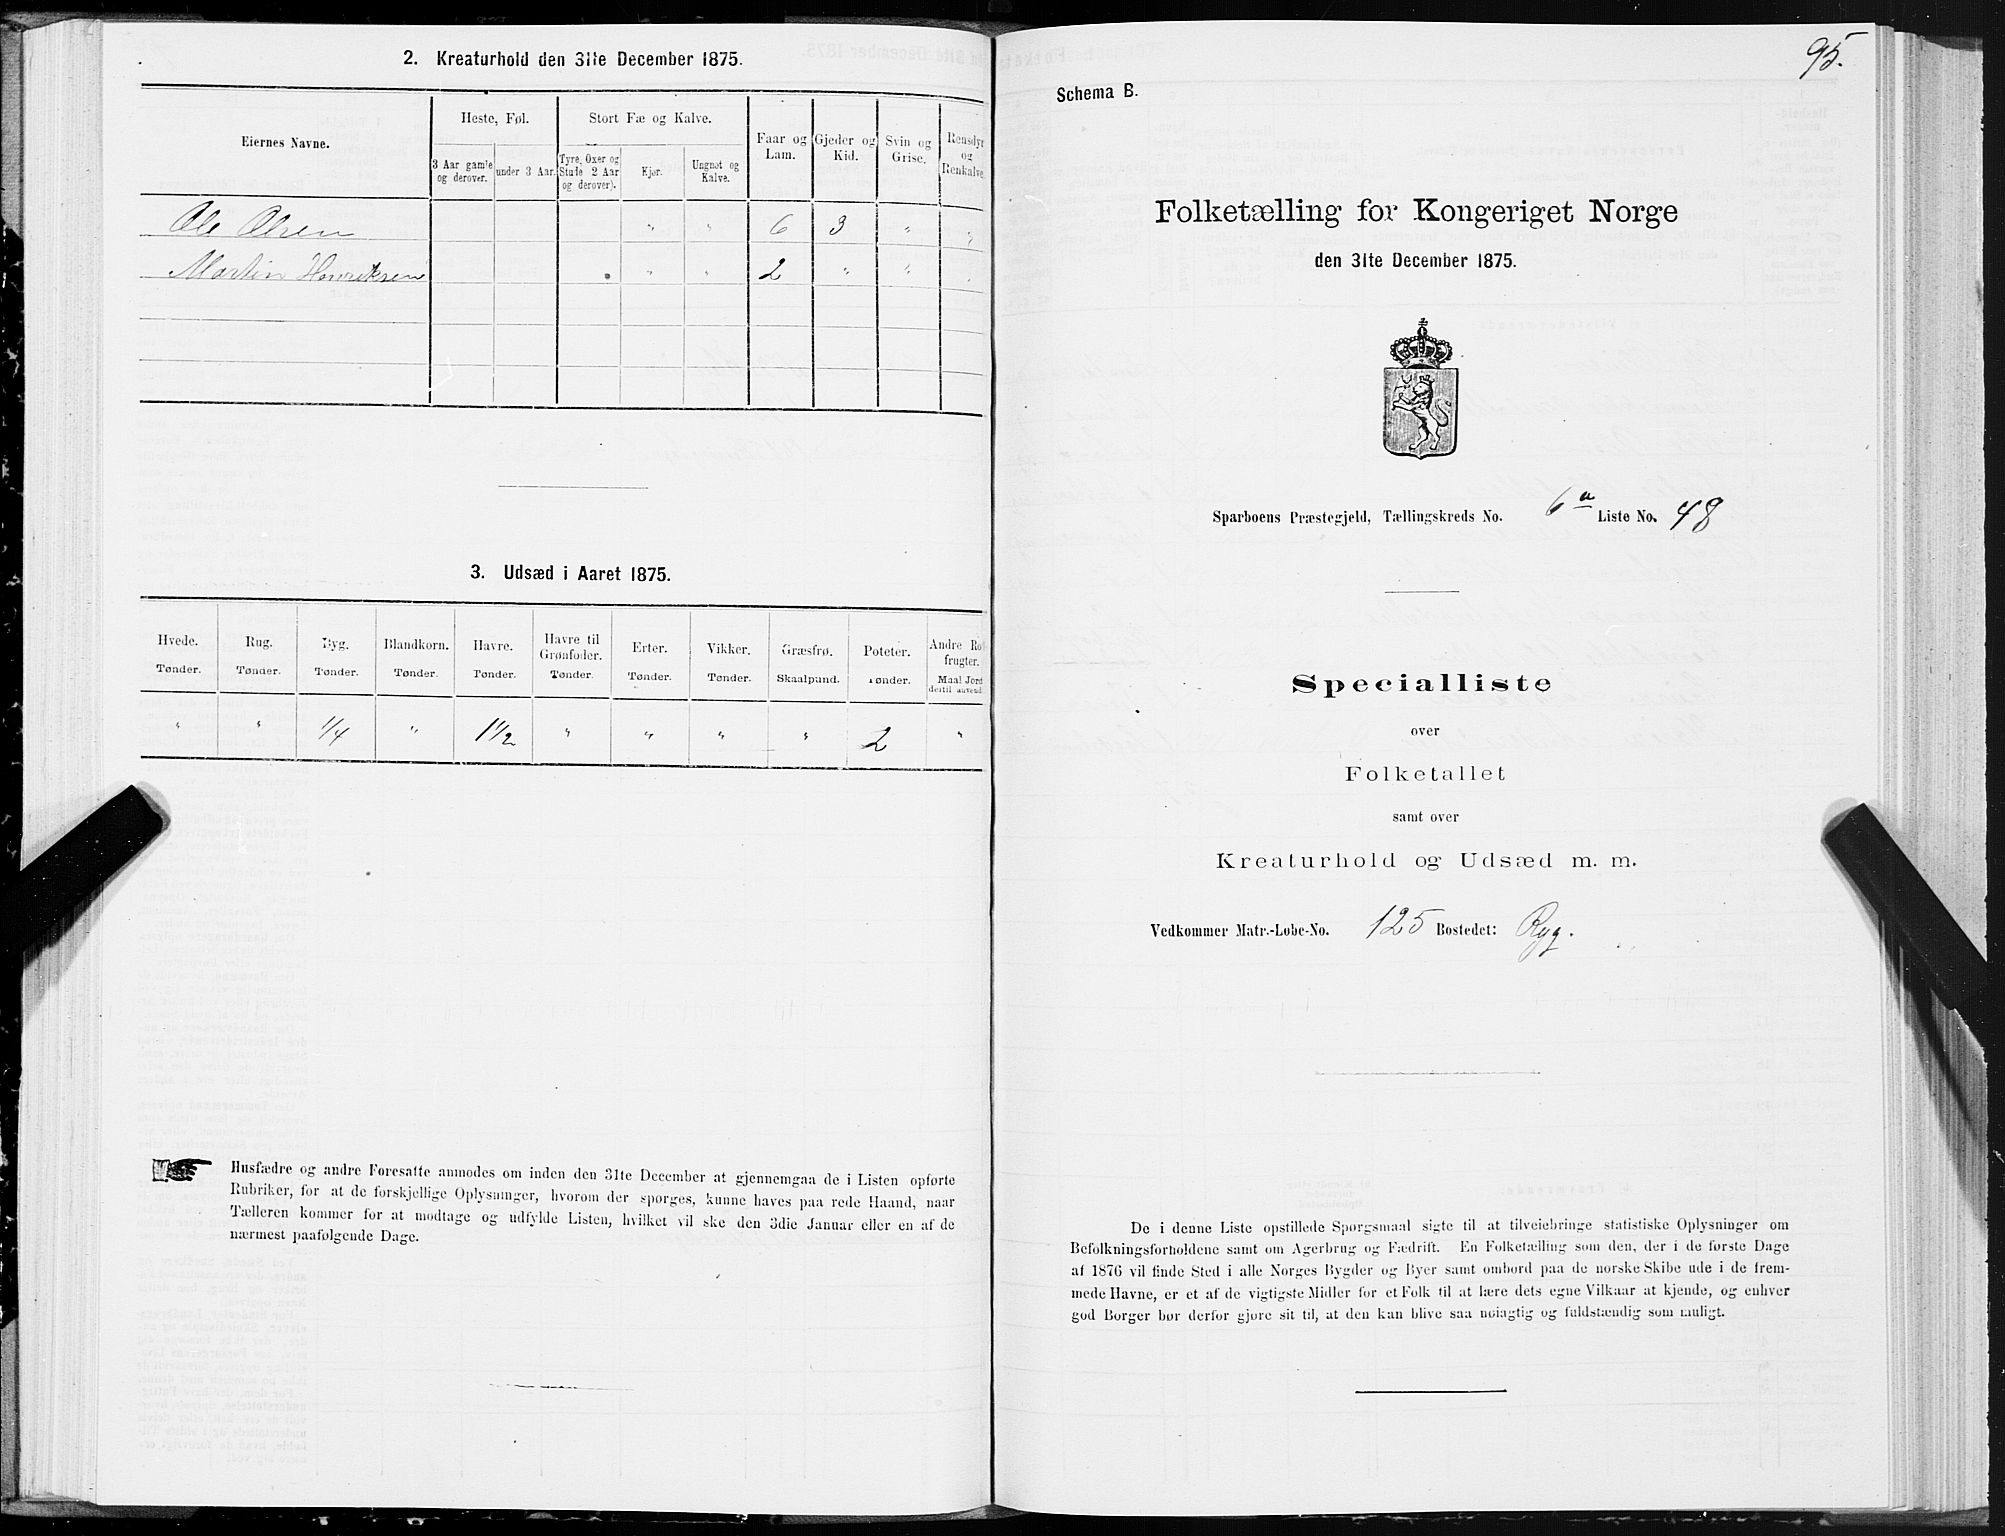 2. Kreaturhold den 31te December 1875.
Eiernes Navne.
Heste, Føl.
Stort Fæ og Kalve.
Faar og Lam.
Gjeder og Kid.
Svin og Grise.
Rensdyr og Renkalve.
3 Aar gamle og derover.
under 3 Aar.
Tyre, Oxer og Stude 2 Aar og derover).
Kjør.
Ungnøt og Kalve.
Ole Olsen " " 6 3 " "
Martin Henriksen " " 2 " " "
3. Udsæd i Aaret 1875.
Hvede. Rug. Byg. Blandkorn. Havre. Havre til Grønfoder. Erter. Vikker. Græsfrø. Poteter. Andre Rodfrugter.
Tønder. Tønder. Tønder. Tønder. Tønder. Tønder. Tønder. Tønder. Skaalpund. Tønder. Maal Jord dertil anvendt
" " 1/4 " 1 1/2 " " " " 2 "
Husfædre og andre Foresatte anmodes om inden den 31te December at gjennemgaa de i Listen opførte
Rubriker, for at de forskjellige Oplysninger, hvorom der spørges, kunne haves paa rede Haand, naar
Tælleren kommer for at modtage og udfylde Listen, hvilket vil ske den 3die Januar eller en af de
nærmest paafølgende Dage.
95.
Schema B.
Folketælling for Kongeriget Norge
den 31te December 1875.
Sparboens Præstegjeld, Tællingskreds No. 6a Liste No. 48
Specialliste
over
Folketallet
samt over
Kreaturhold og Udsæd m. m.
Vedkommer Matr.-Løbe-No. 125 Bostedet: Ryg.
De i denne Liste opstillede Spørgsmaal sigte til at tilveiebringe statistiske Oplysninger om
Befolkningsforholdene samt om Agerbrug og Fædrift. En Folketælling som den, der i de første Dage
af 1876 vil finde Sted i alle Norges Bygder og Byer samt ombord paa de norske Skibe ude i de frem-
mede Havne, er et af de vigtigste Midler for et Folk til at lære dets egne Vilkaar at kjende, og enhver
god Borger bør derfor gjøre sit til, at den kan blive saa nøiagtig og fuldstændig som muligt.